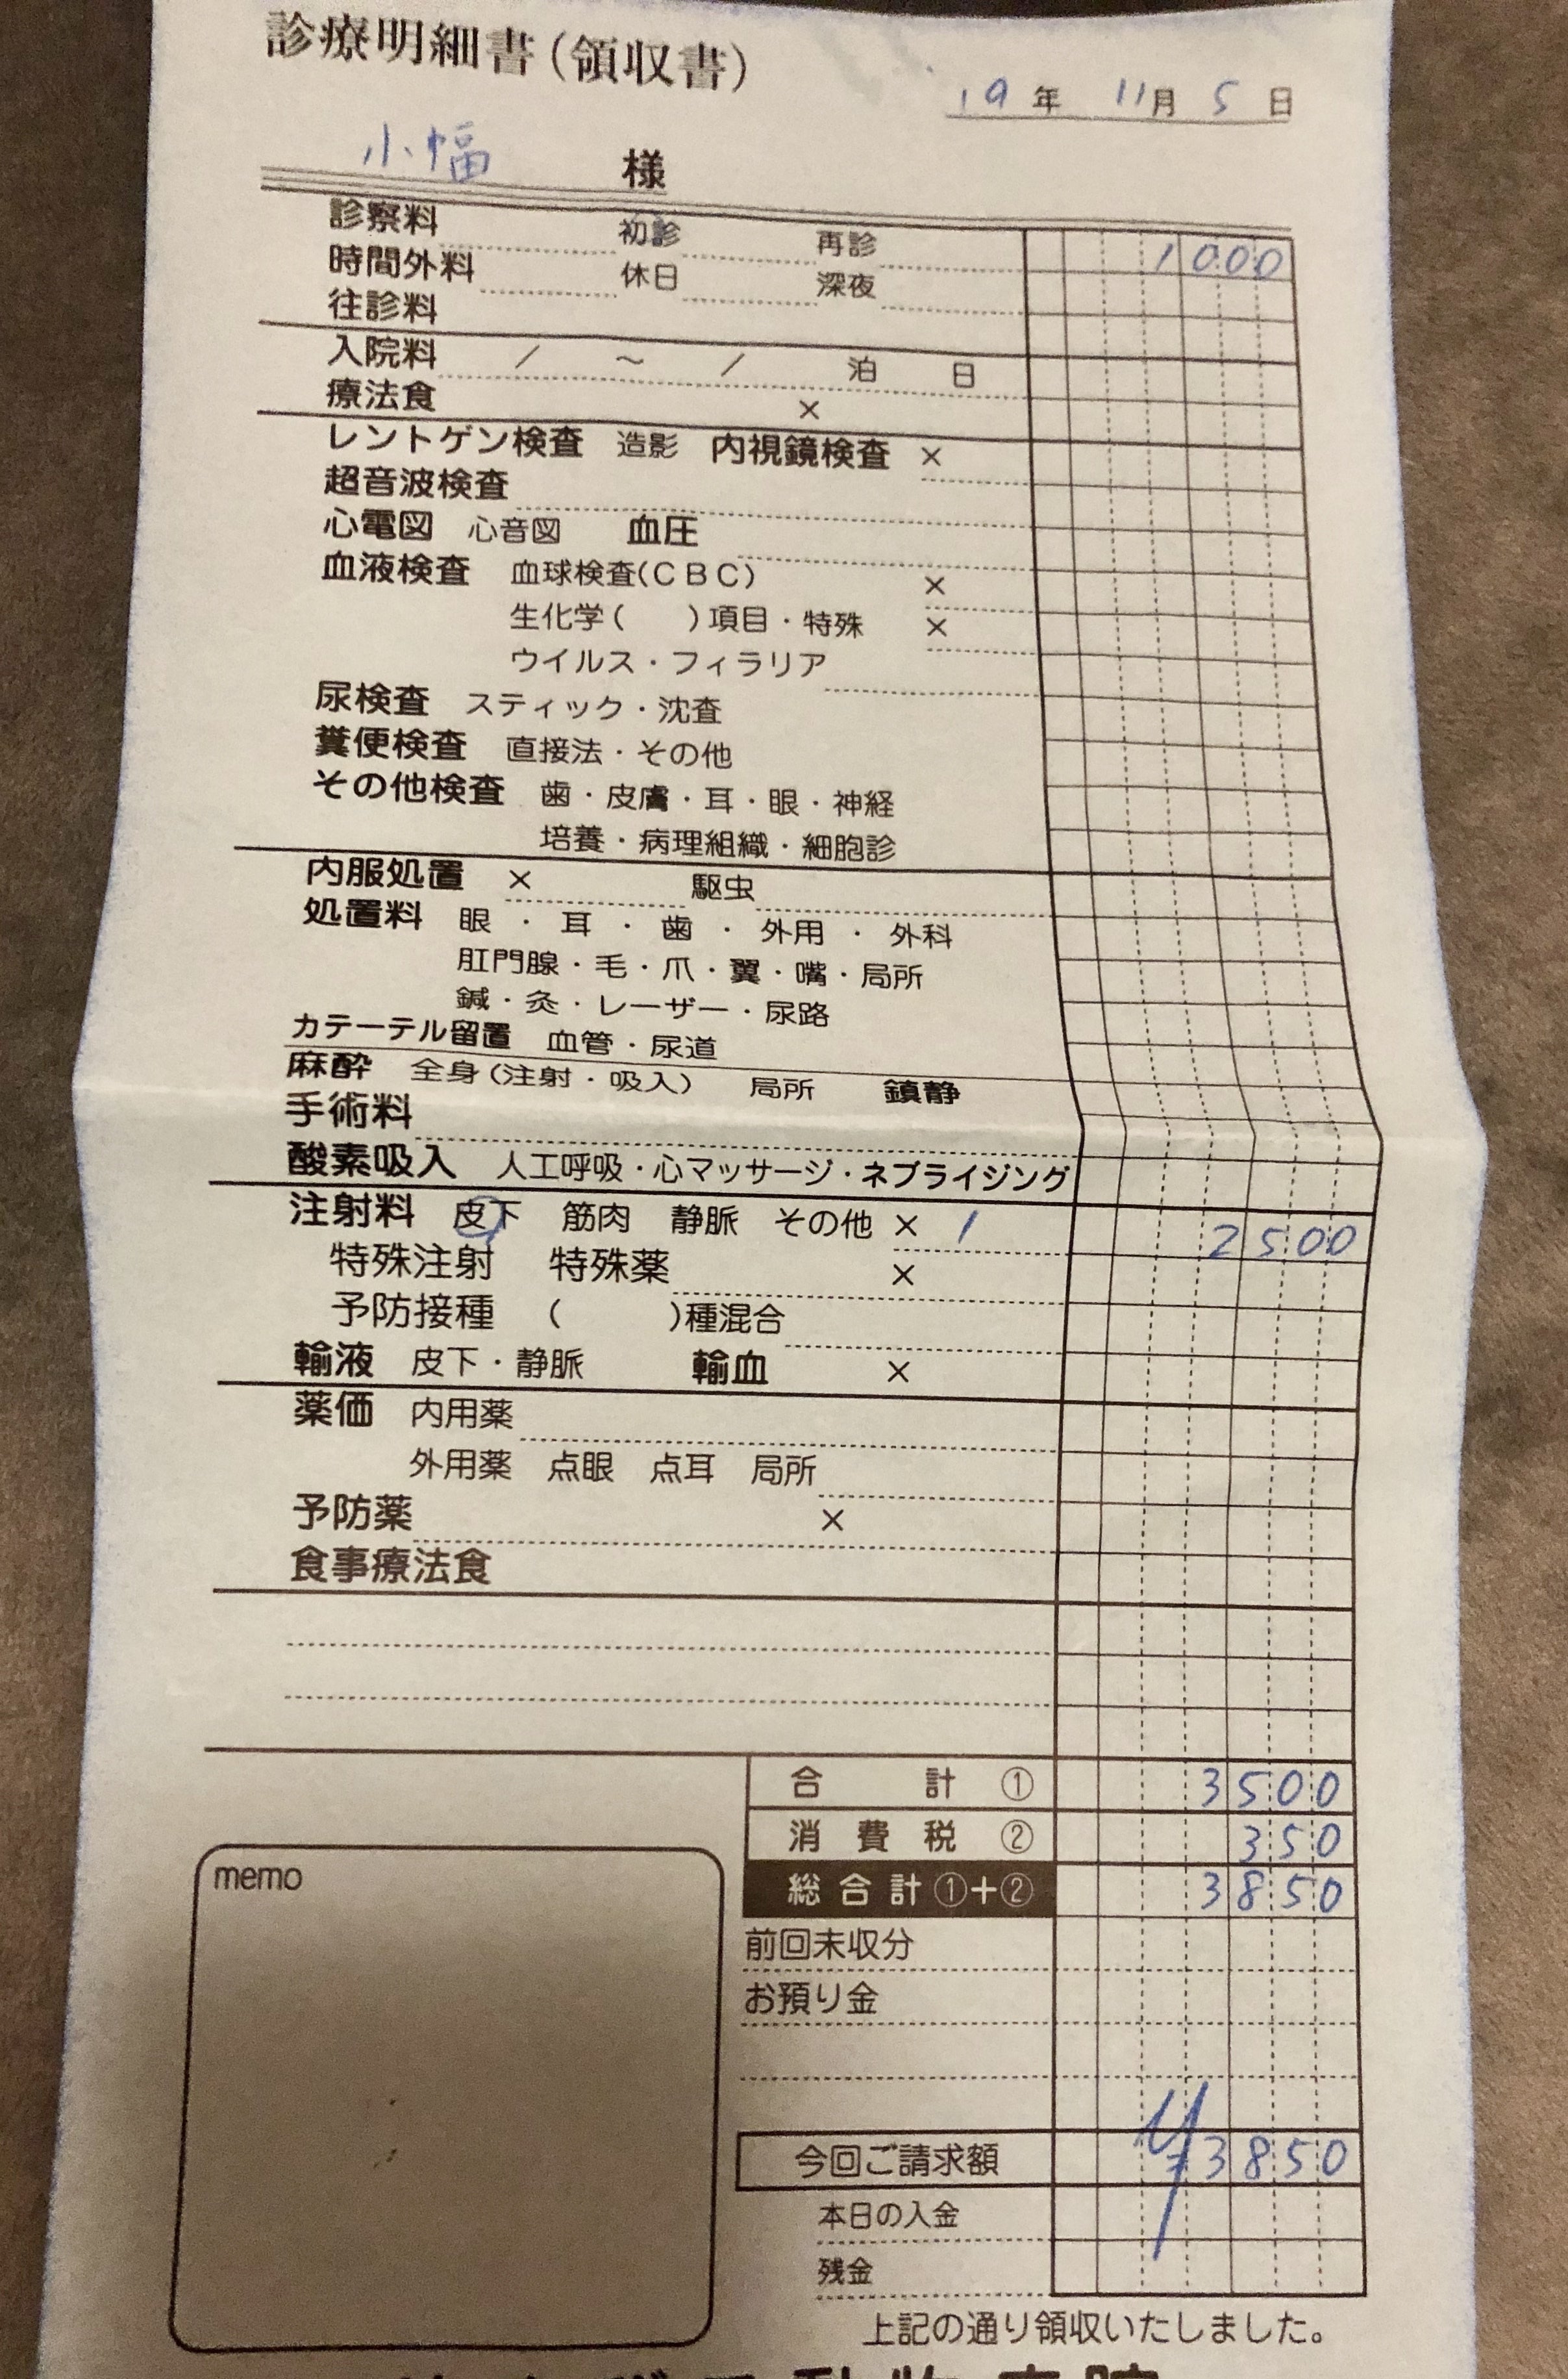 診療明細書(領収書)
19年 11月 5日
小幅 様
診察料 初診 再診 1000
時間外料 休日 深夜
往診料
入院料 / ～ / 泊 日
療法食 ×
レントゲン検査 造影 内視鏡検査 ×
超音波検査
心電図 心音図 血圧
血液検査 血球検査(CBC) ×
生化学( )項目・特殊 ×
ウイルス・フィラリア
尿検査 スティック・沈査
糞便検査 直接法・その他
その他検査 歯・皮膚・耳・眼・神経
培養・病理組織・細胞診
内服処置 × 駆虫
処置料 眼・耳・歯・外用・外科
肛門腺・毛・爪・翼・嘴・局所
鍼・灸・レーザー・尿路
カテーテル留置 血管・尿道
麻酔 全身(注射・吸入) 局所 鎮静
手術料
酸素吸入 人工呼吸・心マッサージ・ネブライジング
注射料 皮下 筋肉 静脈 その他 × 1 2500
特殊注射 特殊薬 ×
予防接種 ( )種混合
輸液 皮下・静脈 輸血 ×
薬価 内用薬
外用薬 点眼 点耳 局所
予防薬 ×
食事療法食
合計① 3500
消費税② 350
総合計①+② 3850
memo
前回未収分
お預り金
今回ご請求額 ¥3850
本日の入金
残金
上記の通り領収いたしました。
動物病院